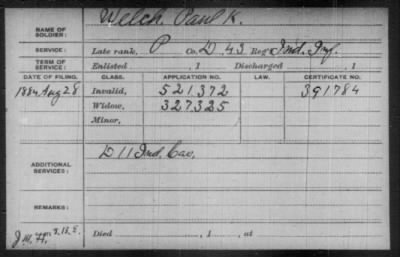 NAME OF SOLDIER: Welch, Paul K.
SERVICE: Late rank, P Co. D. 43 Reg't Ind. Inf.
TERM OF SERVICE: Enlisted , 1 Discharged , 1
DATE OF FILING. CLASS. APPLICATION NO. LAW. CERTIFICATE NO.
1884 Aug 28 Invalid, 521,372 391784
Widow, 327,325
Minor,
ADDITIONAL SERVICES: D 11 Ind. Cav.
REMARKS:
Died , 1 , at